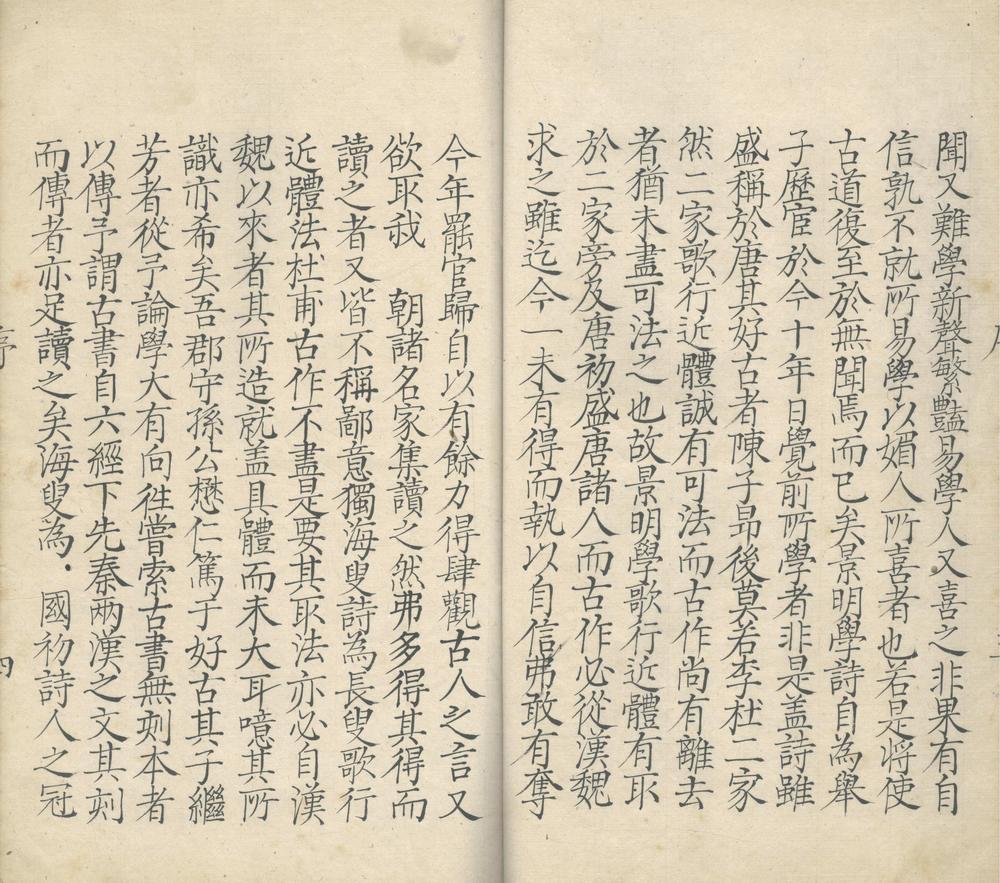 聞又難學新聲繁豔易學人又喜之非果有自
信孰不就所易學以媚人所喜者也若是將使
古道復至於無聞焉而已矣景明學詩自為舉
子歷宦於今十年日覺前所學者非是盖詩雖
盛稱於唐其好古者陳子昻後莫若李杜二家
然二家歌行近體誠有可法而古作尚有離去
者猶未盡可法之也故景明學歌行近體有取
於二家旁及唐初盛唐諸人而古作必從漢魏
求之雖迄今一未有得而執以自信弗敢有奪
今年罷官歸自以有餘力得肆觀古人之言又
欲取我 朝諸名家集讀之然弗多得其得而
讀之者又皆不稱鄙意獨海叟詩為長叟歌行
近體法杜甫古作不盡是要其取法亦必自漢
魏以來者其所造就盖具體而未大耳噫其所
識亦希矣吾郡守孫公懋仁篤于好古其子繼
芳者從予論學大有向徃嘗索古書無刻本者
以傳予謂古書自六經下先秦兩漢之文其刻
而傳者亦足讀之矣海叟為 國初詩人之冠
四